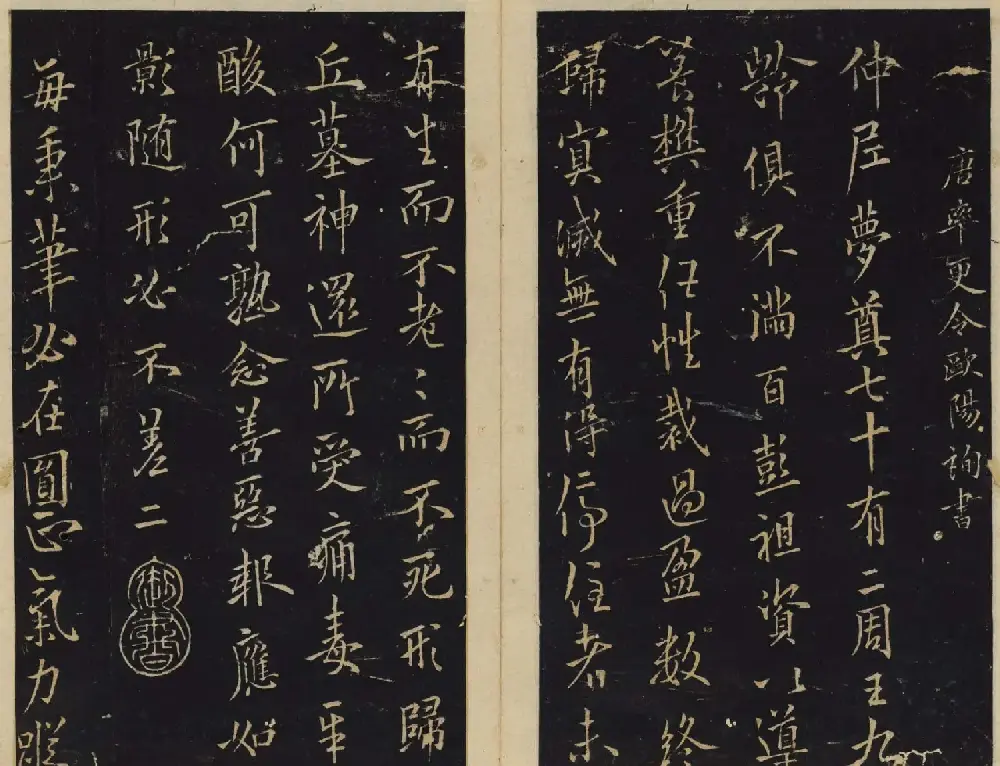 唐率更令歐陽詢書
仲尼夢奠七十有二周王九
齡俱不滿百彭祖資以導
養樊重任性裁過盈數終
歸冥滅無有得停住者未
有生而不老〻而不死形歸
丘墓神還所受痛毒辛
酸何可熟念善惡報應如
影随形必不差二
御書
每秉筆必在圓正氣力縱